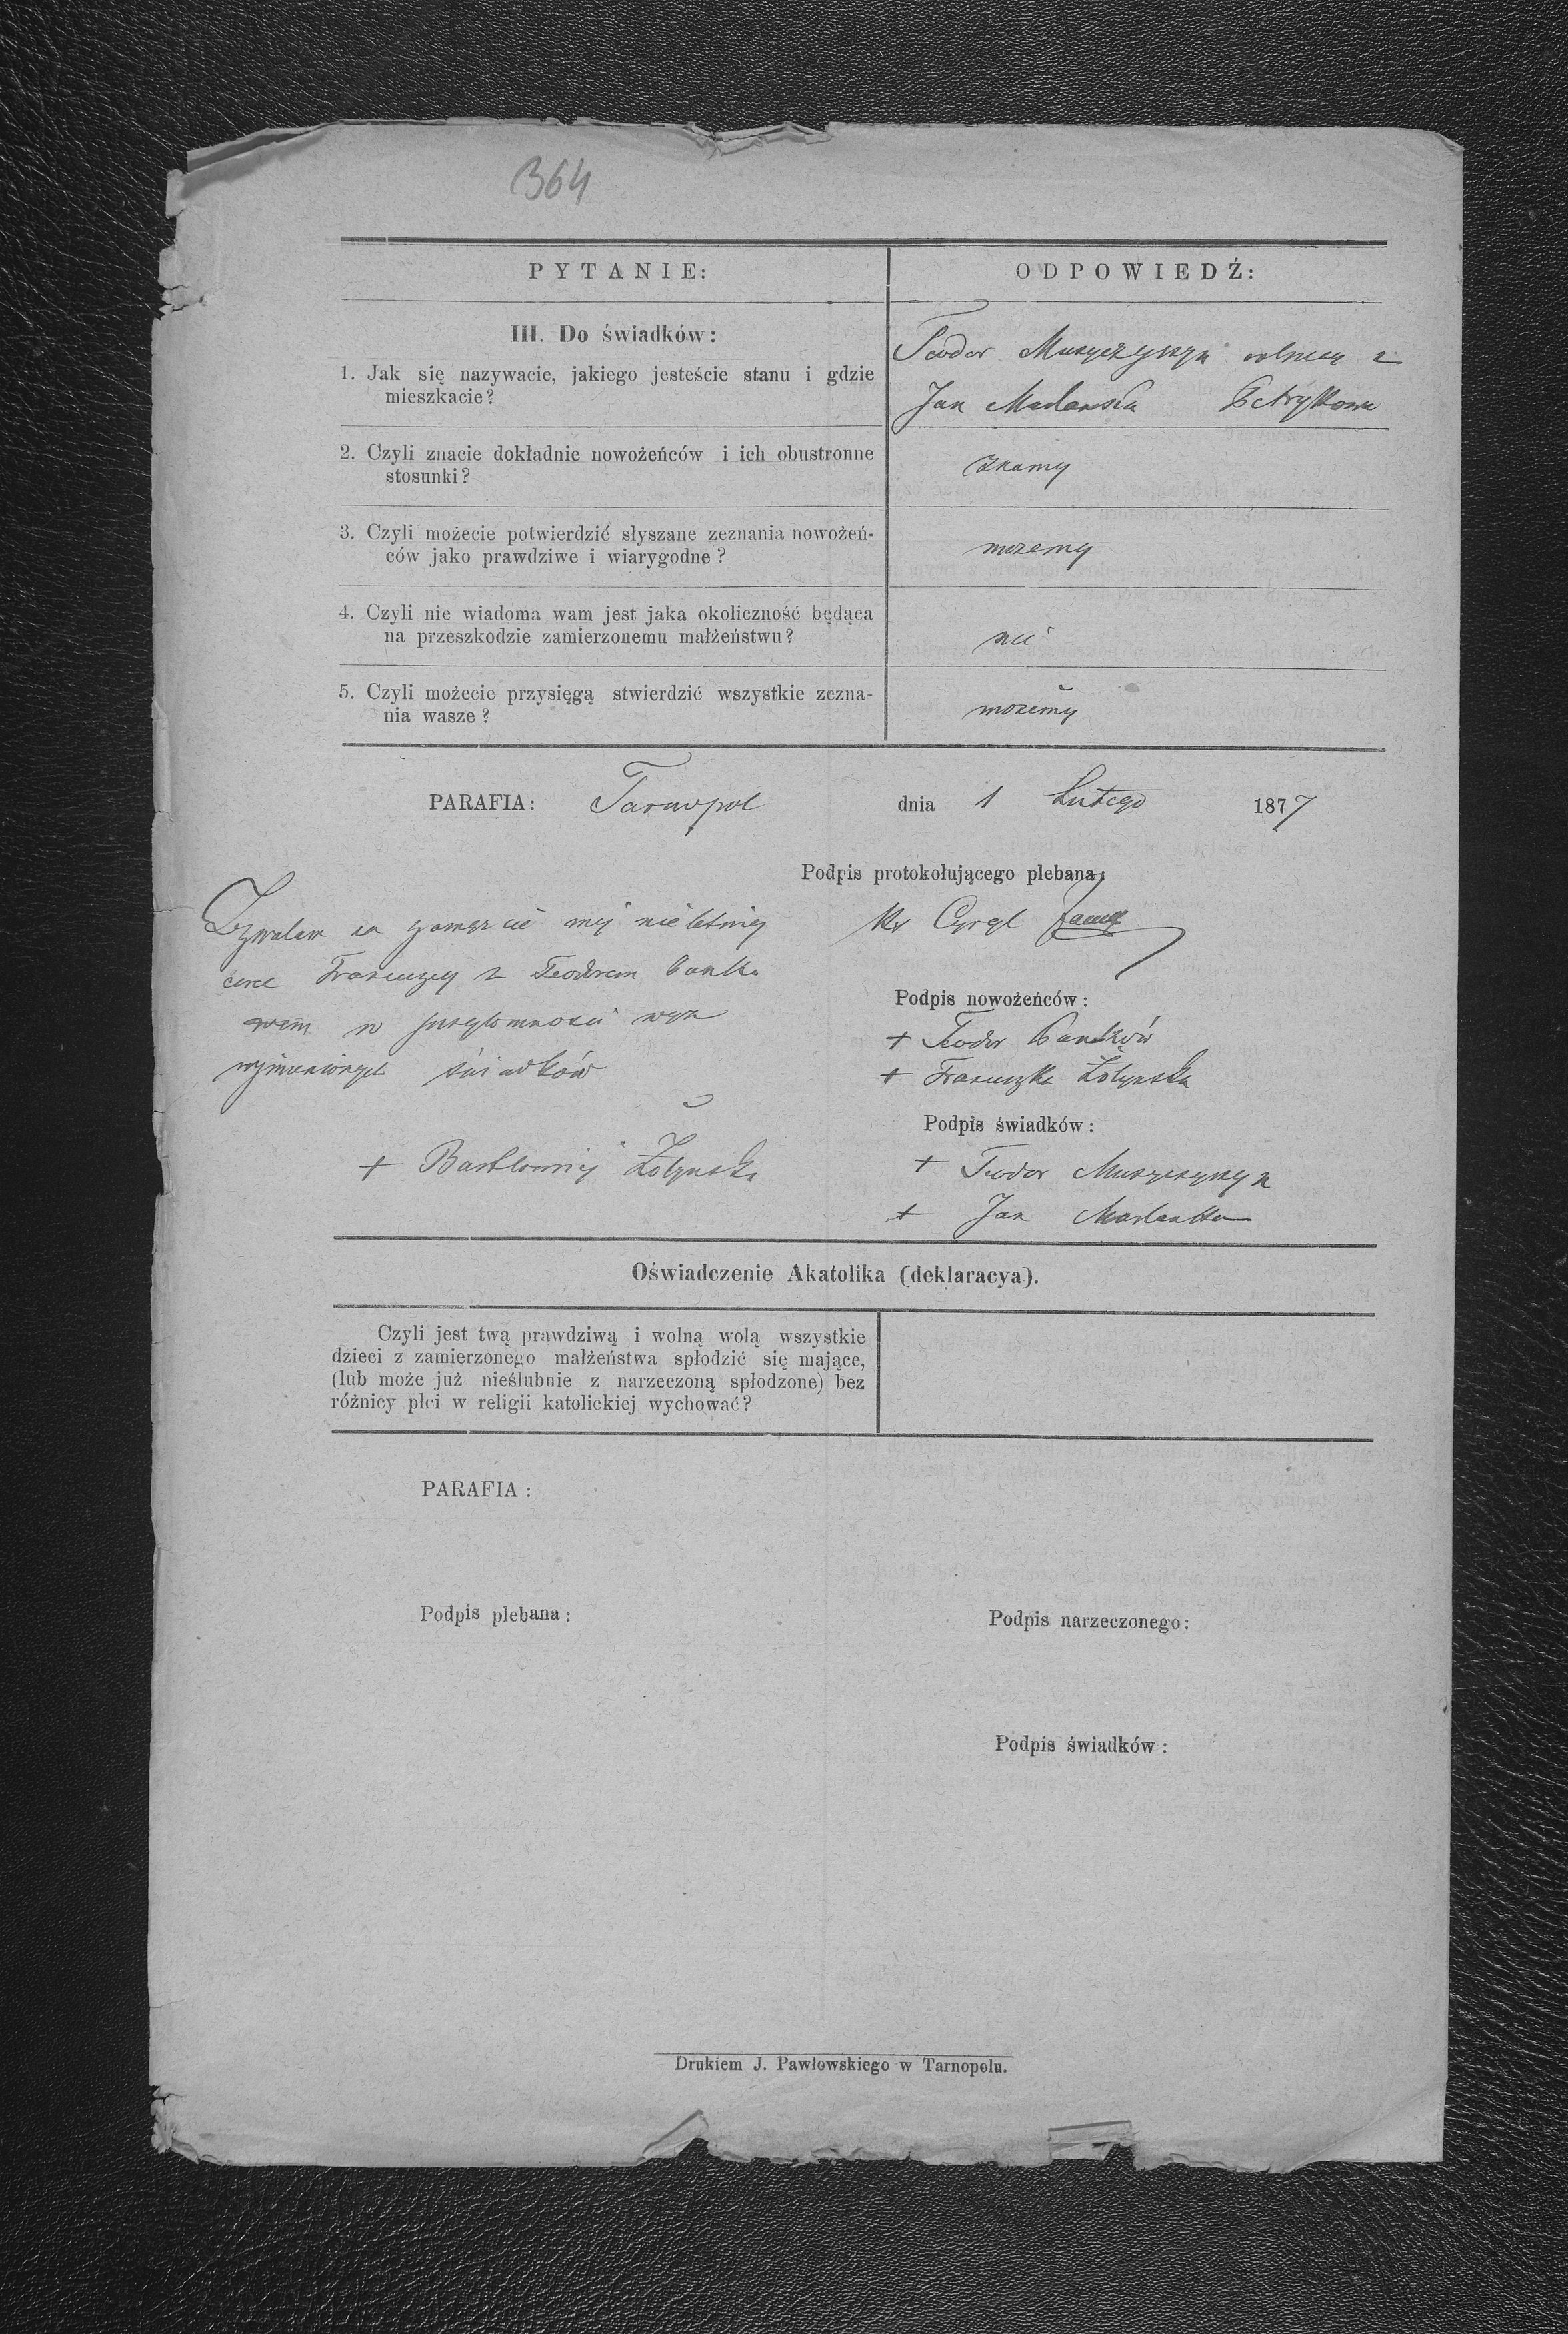 364
PYTANIE:
ODPOWIEDŹ:
III. Do świadków:
1. Jak się nazywacie, jakiego jesteście stanu i gdzie
mieszkacie?
Teodor Muszczyszyn rolnicy z
Jan
2. Czyli znacie dokładnie nowożeńców i ich obustronne
stosunki?
znamy
3. Czyli możecie potwierdzić słyszane zeznania nowożeń-
ców jako prawdziwe i wiarygodne?
możemy
4. Czyli nie wiadoma wam jest jaka okoliczność będąca
na przeszkodzie zamierzonemu małżeństwu?
nie
5. Czyli możecie przysięgą stwierdzić wszystkie zezna-
nia wasze?
możemy
PARAFIA: Tarnopol dnia 1 Lutego 1877
Podpis protokołującego plebana:
Ks Cyryl
Zezwalam na zamęzcie mej nieletniej
corce Franciszcy z Teodorem Bańko
wem w przytomności wyz
wymienionych świadków
+ Bartłomiej Żołyński
Podpis nowożeńców:
+ Teodor Bańków
+ Franciszka Żołyńska
Podpis świadków:
+ Teodor Muszczyszyn
+ Jan
Oświadczenie Akatolika (deklaracya).
Czyli jest twą prawdziwą i wolną wolą wszystkie
dzieci z zamierzonego małżeństwa spłodzić się mające,
(lub może już nieślubnie z narzeczoną spłodzone) bez
różnicy płci w religii katolickiej wychować?
PARAFIA:
Podpis plebana:
Podpis narzeczonego:
Podpis świadków:
Drukiem J. Pawłowskiego w Tarnopolu.